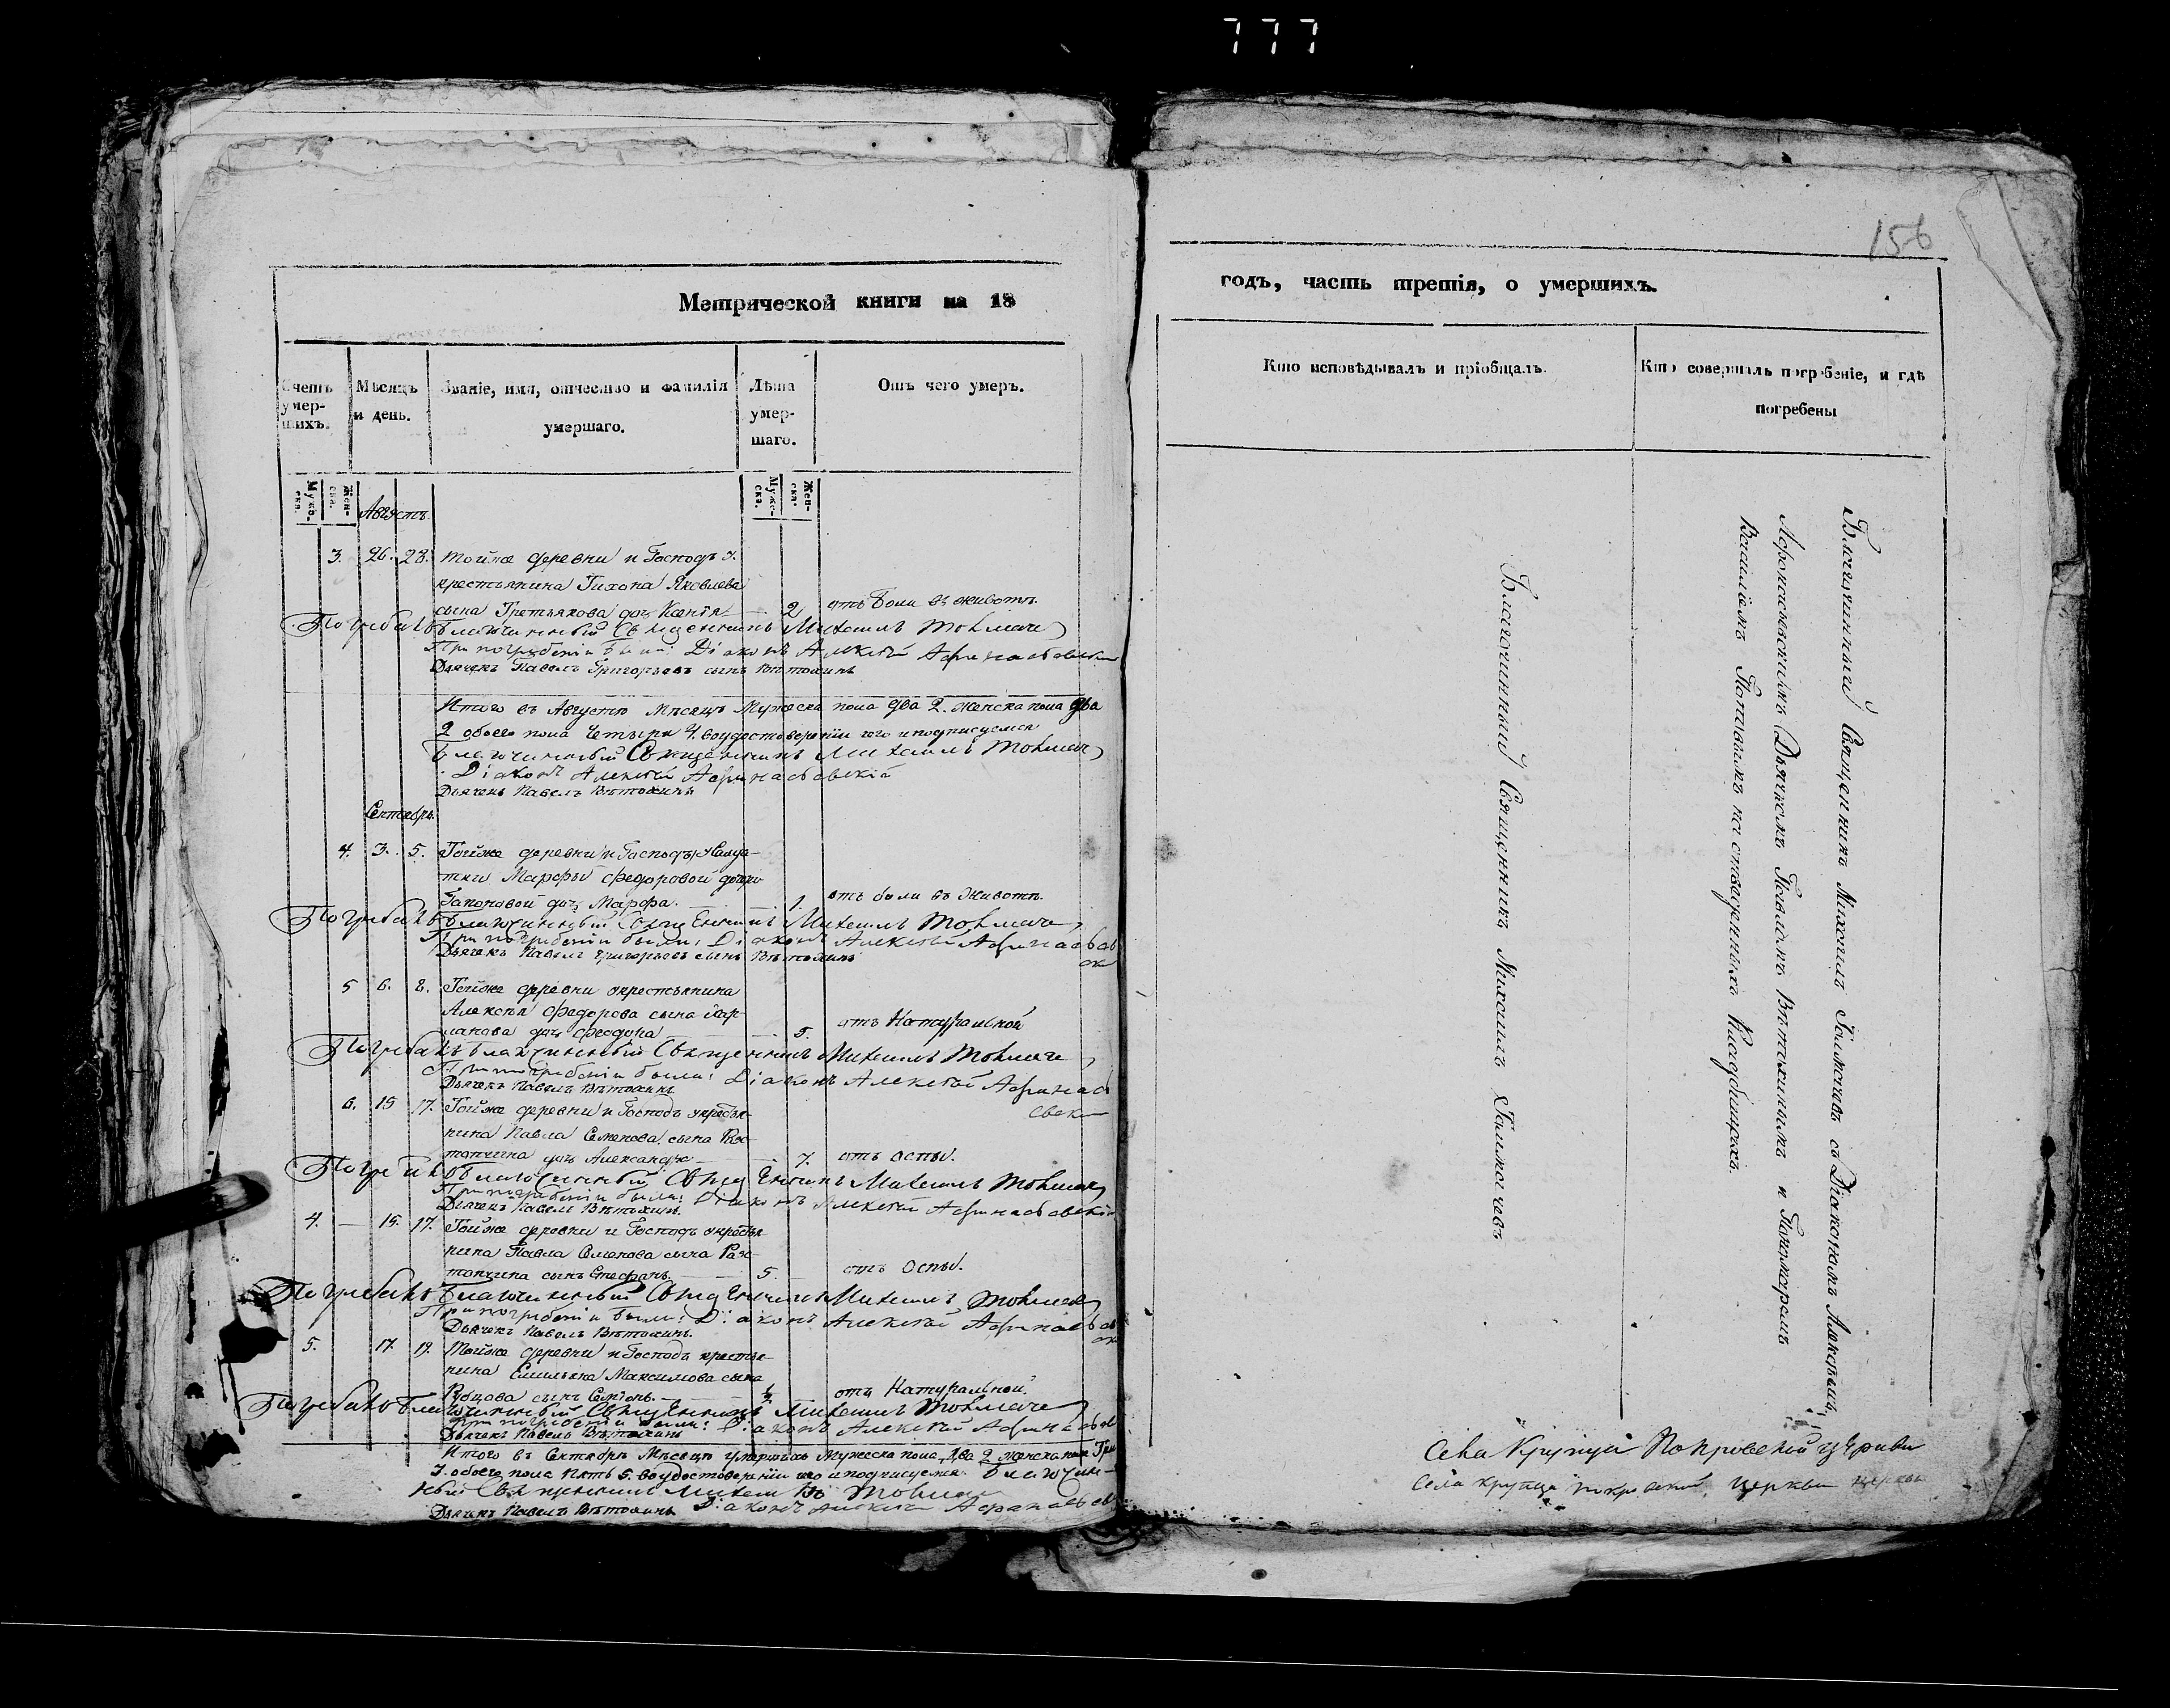 777
156
Метрической книги на 18
Счетъ умер-шихъ.
Мѣсяцъ и день.
Званіе, имя, отчество и фамилія умершаго.
Лѣта умер-шаго.
Отъ чего умеръ.
Муже-ска.
Жен-ска.
Муже-ска.
Жен-ска.
Августъ.
3. 26. 28. Тойже деревни и Господъ
крестьянина Тихона Яковлева
сына Третьякова дочь Ксенія 2 отъ боли въ животѣ.
Погребалъ Благочинный Священникъ Михаилъ Толмачевъ
При погребеніи были: Діаконъ Алексѣй Афанасьевскій
Дьячекъ Павелъ Григорьевъ сынъ
Итого въ Августѣ Мѣсяцѣ Мужеска пола два 2. женска пола два
2 обоего пола четыри 4. воудостовереніи чего и подписуемся
Благочинный Священникъ Михаилъ Толмачевъ
Діаконъ Алексѣй Афанасьевскій
Дьячекъ Павелъ
Сентябрь.
4. 3. 5. Тойже деревни и Господъ Солда-
тки Марфы Федоровой дочери
дочь Марфа. 1. отъ боли въ животѣ.
Погребалъ Благочинный Священникъ Михаилъ Толмачевъ
При погребеніи были: Діаконъ Алексѣй Афанасьевск
Дьячекъ Павелъ Григорьевъ сынъ
5 6. 8. Тойже деревни крестьянина
Алексѣя Федорова сына
дочь Феодора 5. отъ Натуральной
Погребалъ Благочинный Священникъ Михаилъ Толмачевъ
При погребеніи были: Діаконъ Алексѣй Афанасьевск
Дьячекъ Павелъ
6. 15 17. Тойже деревни и Господъ крестья-
нина Павла Семенова сына
дочь Александра 7. отъ оспы.
Погребалъ Благочинный Священникъ Михаилъ Толмачевъ
При погребеніи были: Діаконъ Алексѣй Афанасьевскій
Дьячекъ Павелъ
4. — 15. 17. Тойже деревни и Господъ крестья
нина Павла Семенова сына
сынъ Стефанъ. 5. отъ Оспы.
Погребалъ Благочинный Священникъ Михаилъ Толмачевъ
При погребеніи были: Діаконъ Алексѣй Афанасьевск
Дьячекъ Павелъ
5. 17. 19. Тойже деревни и Господъ крестья-
нина Емильяна Максимова сына
Рубцова сынъ Семіонъ. 1/2 отъ Натуральной.
Погребалъ Благочинный Священникъ Михаилъ Толмачевъ
При погребеніи были: Діаконъ Алексѣй Афанасьевск
Дьячекъ Павелъ
Итого въ Сентябрѣ Мѣсяцѣ умершихъ Мужеска пола два 2 женска пола Три
3. обоего пола пять 5. воудостовереніи чего и подписуемся. Благочин-
ный Священникъ Михаилъ Толмачевъ
Дьячекъ Павелъ Діаконъ Алексѣй Афанасьевск
годъ, часть третія, о умершихъ.
Кто исповѣдывалъ и пріобщалъ.
Кто совершалъ погребеніе, и гдѣ погребены
Благочинный Священникъ Михаилъ Толмачевъ
Благочинный Священникъ Михаилъ Толмачевъ съ Діакономъ Алексѣемъ
Афонасьевскимъ Дьячкомъ Павломъ и Пономаремъ
Василіемъ Поповымъ на отведенныхъ Кладбищахъ.
Села Крупца Покровской Церкви
Села Крупца Покровской Церкви Церкви